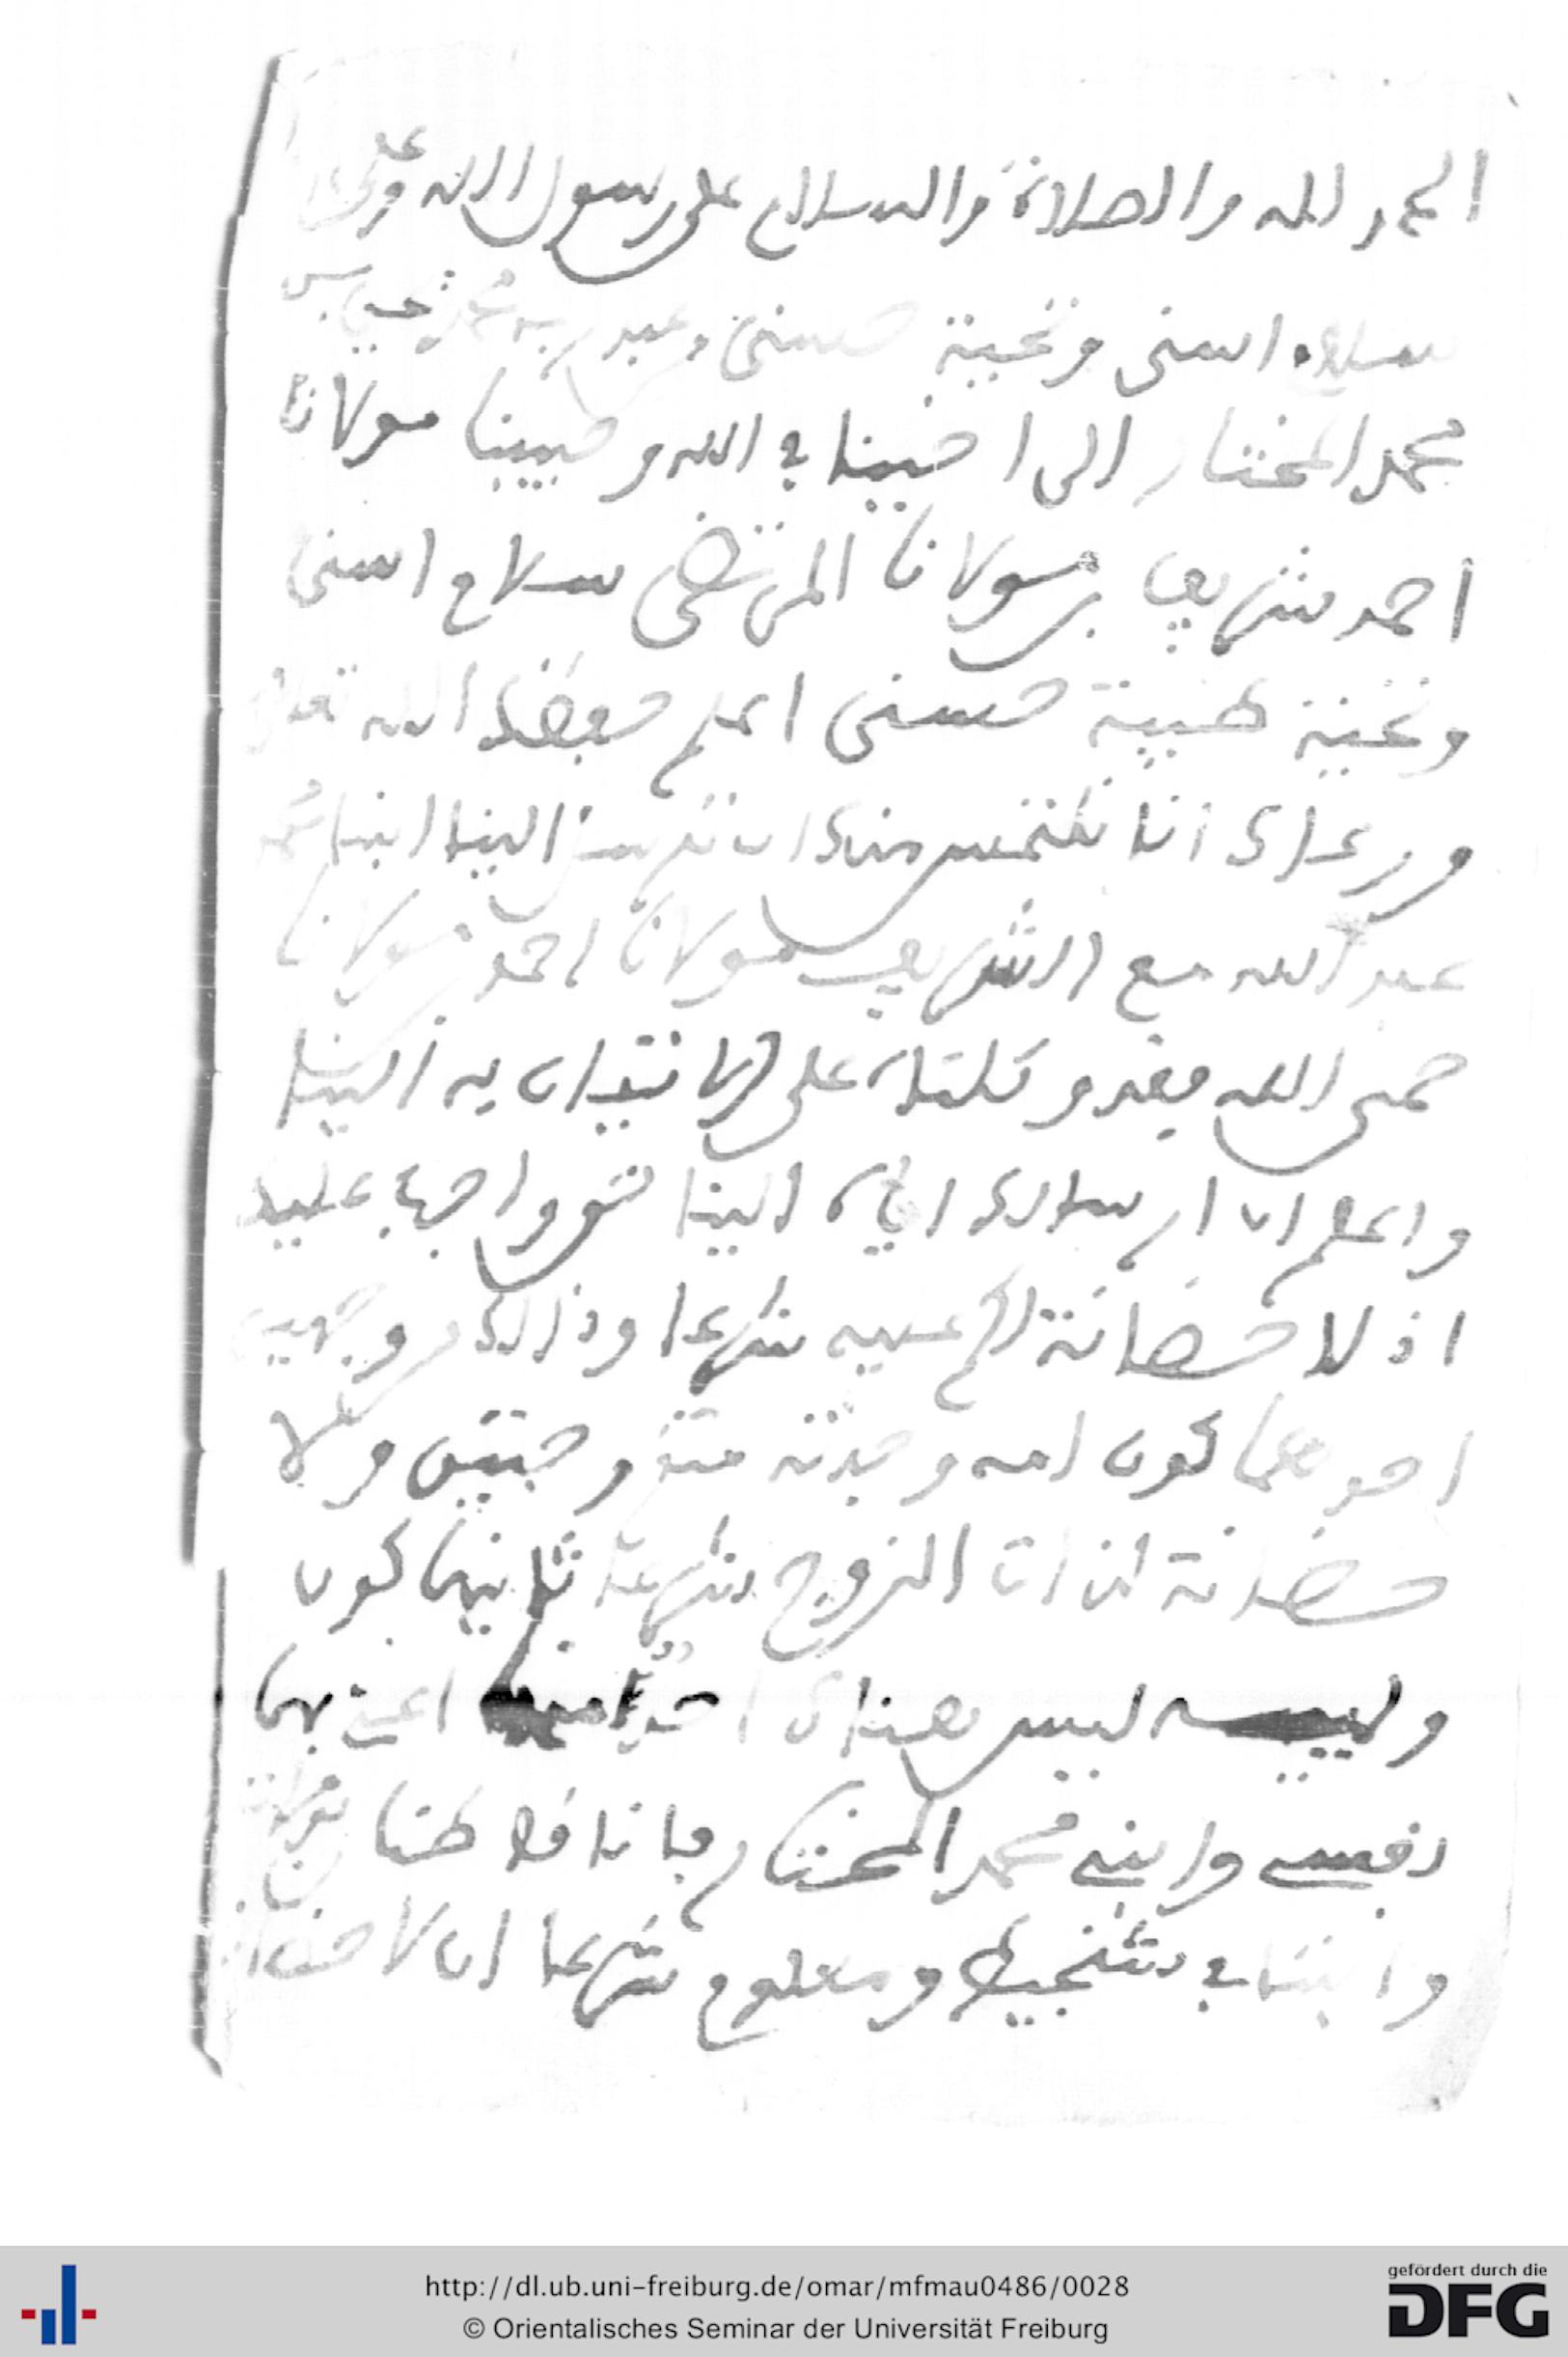 الحمد لله والصلاة والسلام على رسول الله وعلى
سلام اسنى وتحية حسنى من عبد ربه محمد يحيى بن
محمد المختار الى اخينا في الله وحبيبنا مولانا
احمد شريف بن مولانا المرتضى سلام اسنى
وتحية طيبة حسنى اعلم حفظك الله تعالى
ورعاك انا نلتمس منك ان ترسل الينا ابننا محمد
عبد الله مع الشريف مولانا احمد بن مولانا
حمى الله فقد وكلته على الاتيان به الينا
واعلم ان ارسالك اياه الينا واجب عليك
اذ لا حضانة لكم عليه شرعا وذالك من وجهين
احدهما كون امه وجدته متزوجتين ولا
حضانة لذات الزوج شرعا ثانيهما كون
وليه ليس هناك احد منا اعني بهما
نفسي وابني محمد المختار فانا قاطنا
وابننا في تشجيط ومعلوم شرعا ان لا حضانة
http://dl.ub.uni-freiburg.de/omar/mfmau0486/0028
© Orientalisches Seminar der Universität Freiburg
gefördert durch die
DFG